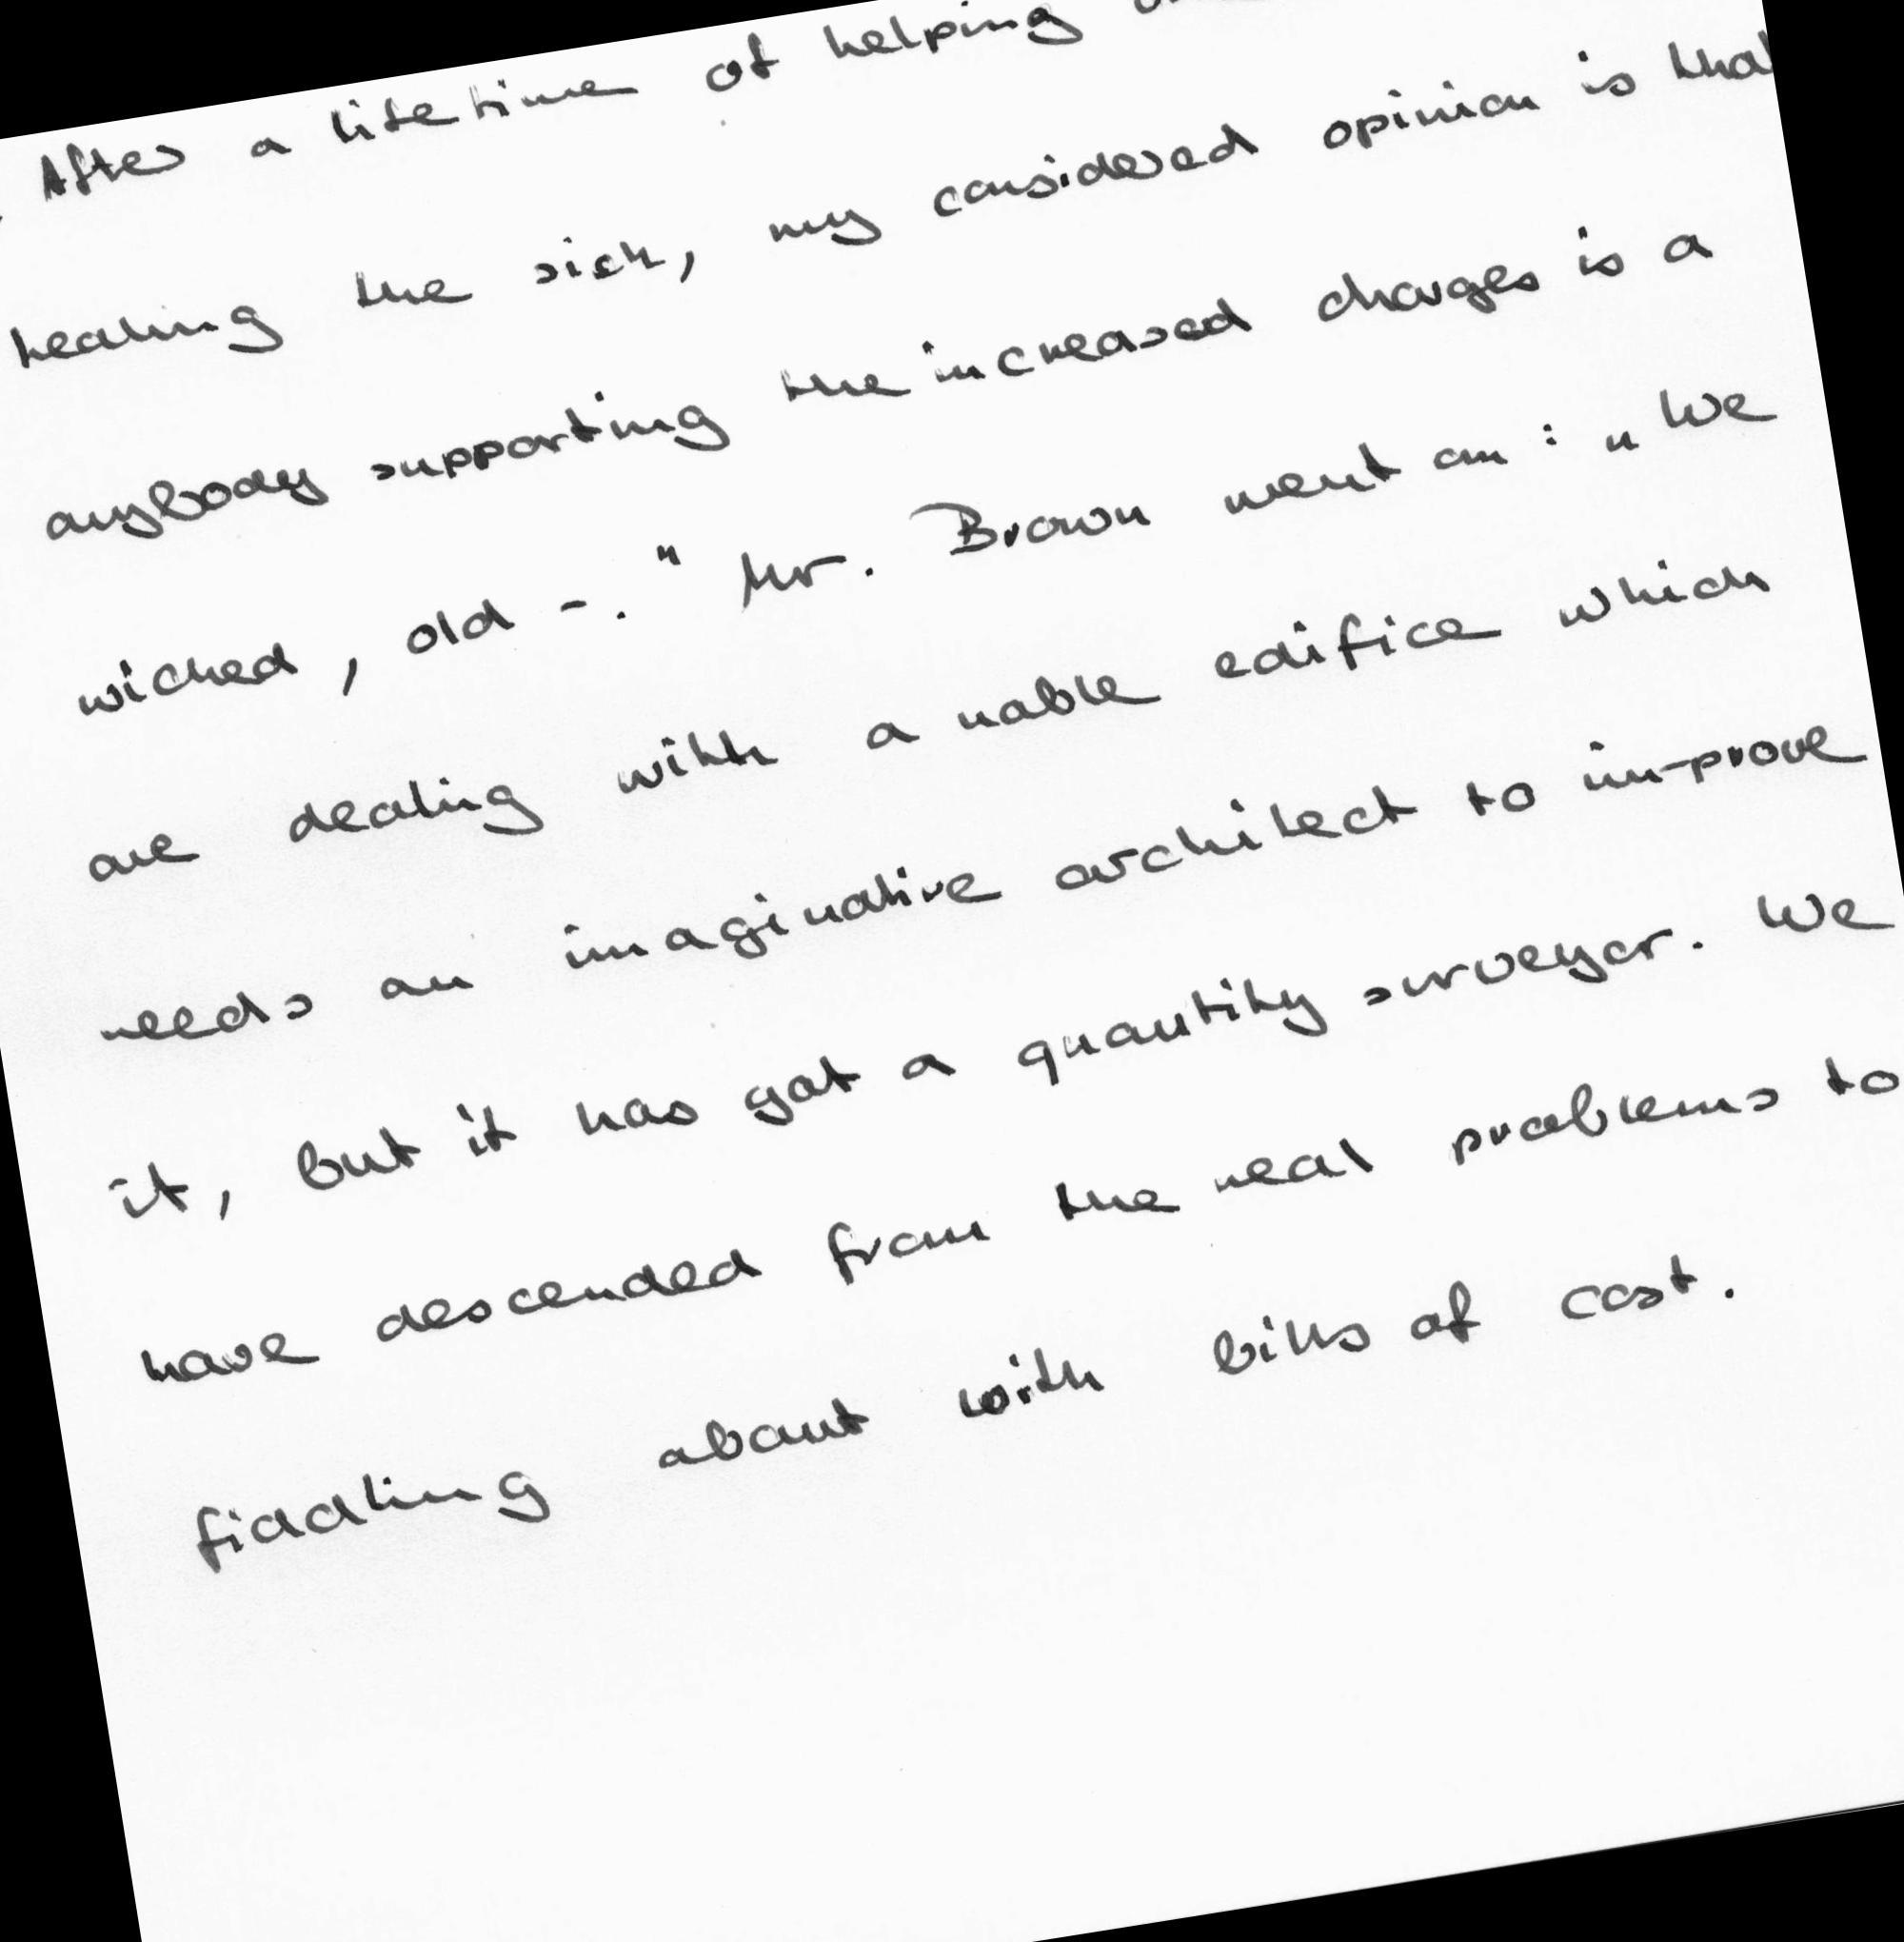 After a lifetime of helping
healing the sick, my considered opinion is that
anybody supporting the increased charges is a
wicked, old -." Mr. Brown went on: "We
are dealing with a noble edifice which
needs an imaginative architect to im-prove
it, but it has got a quantity surveyor. We
have descended from the real problems to
fiddling about with bills of cost.